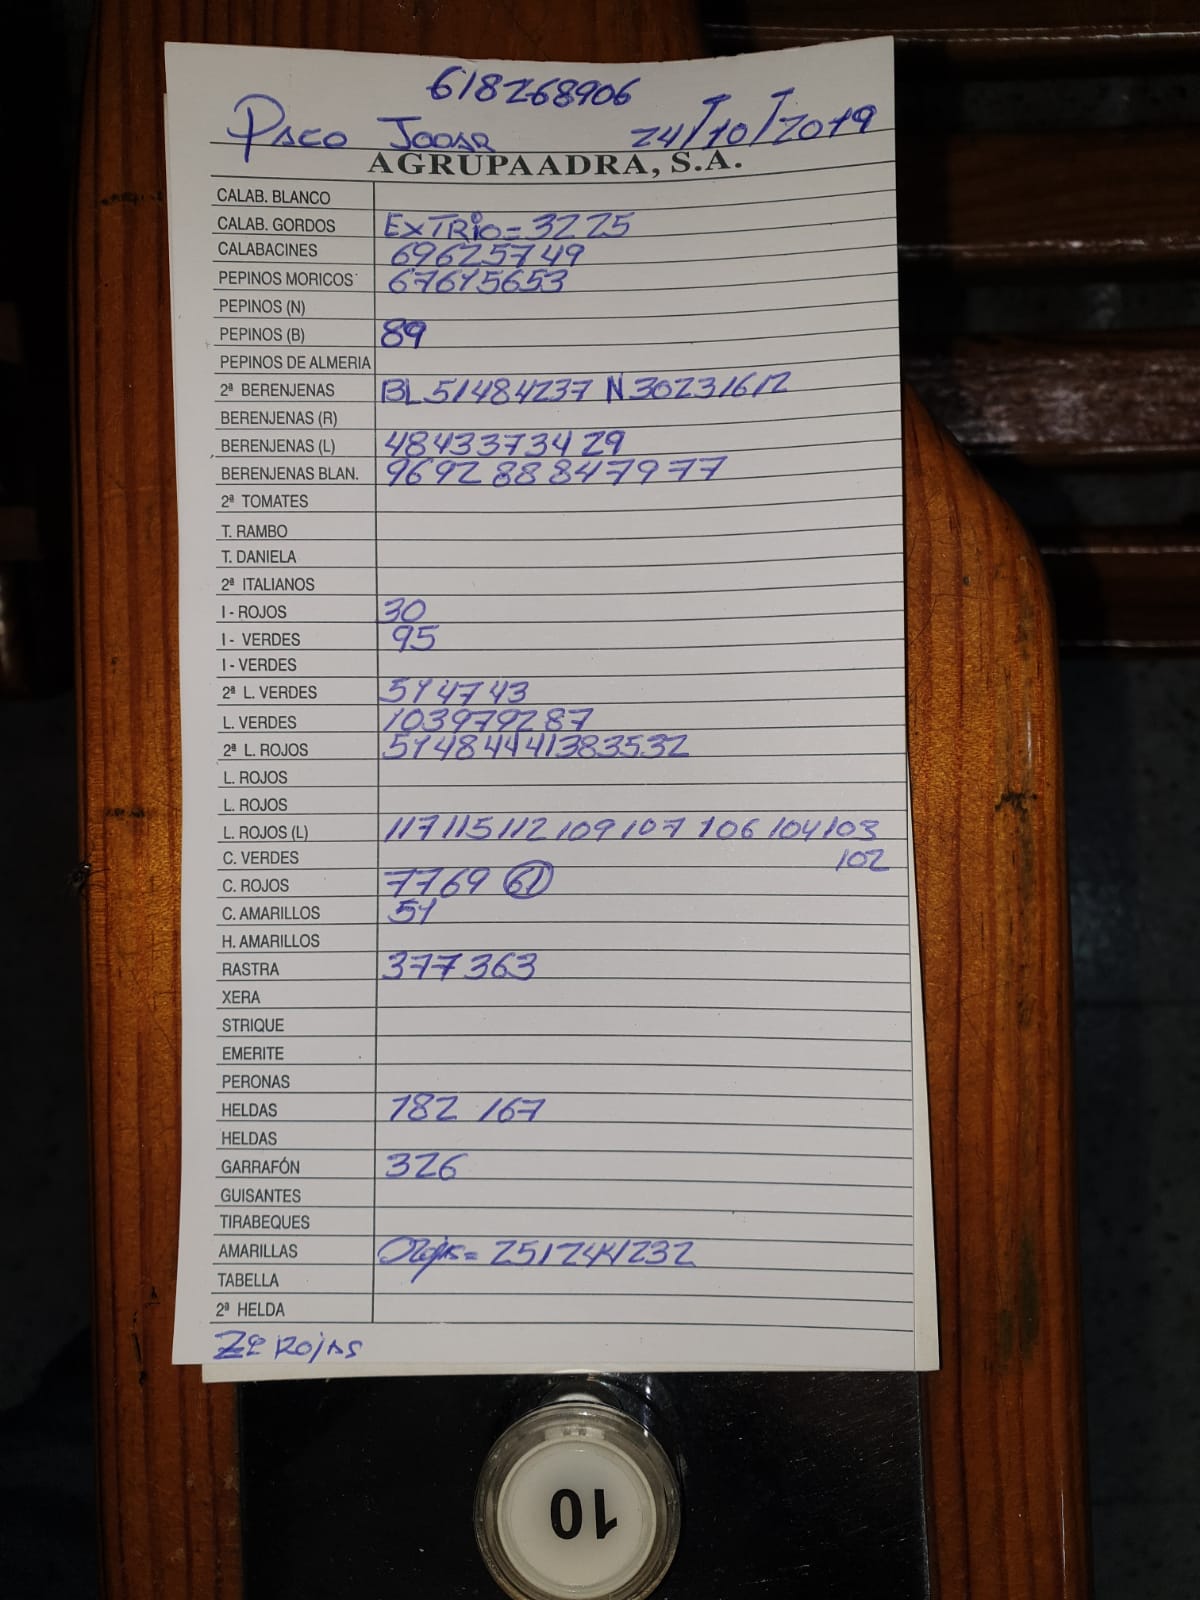 618268906
Paco Jodar 24/10/2019
AGRUPAADRA, S.A.
CALAB. BLANCO
CALAB. GORDOS EXTRIO= 3225
CALABACINES 69625749
PEPINOS MORICOS 67615653
PEPINOS (N)
PEPINOS (B) 89
PEPINOS DE ALMERIA
2ª BERENJENAS BL 51484237 N 30231612
BERENJENAS (R)
BERENJENAS (L) 4843373429
BERENJENAS BLAN. 969288847977
2ª TOMATES
T. RAMBO
T. DANIELA
2ª ITALIANOS
I - ROJOS 30
I - VERDES 95
I - VERDES
2ª L. VERDES 514743
L. VERDES 103979287
2ª L. ROJOS 51484441383532
L. ROJOS
L. ROJOS
L. ROJOS (L) 117 115 112 109 107 106 104 103
C. VERDES 102
C. ROJOS 7769 61
C. AMARILLOS 51
H. AMARILLOS
RASTRA 377 363
XERA
STRIQUE
EMERITE
PERONAS
HELDAS 182 167
HELDAS
GARRAFÓN 326
GUISANTES
TIRABEQUES
AMARILLAS = 251241232
TABELLA
2ª HELDA
2ª ROJAS
10